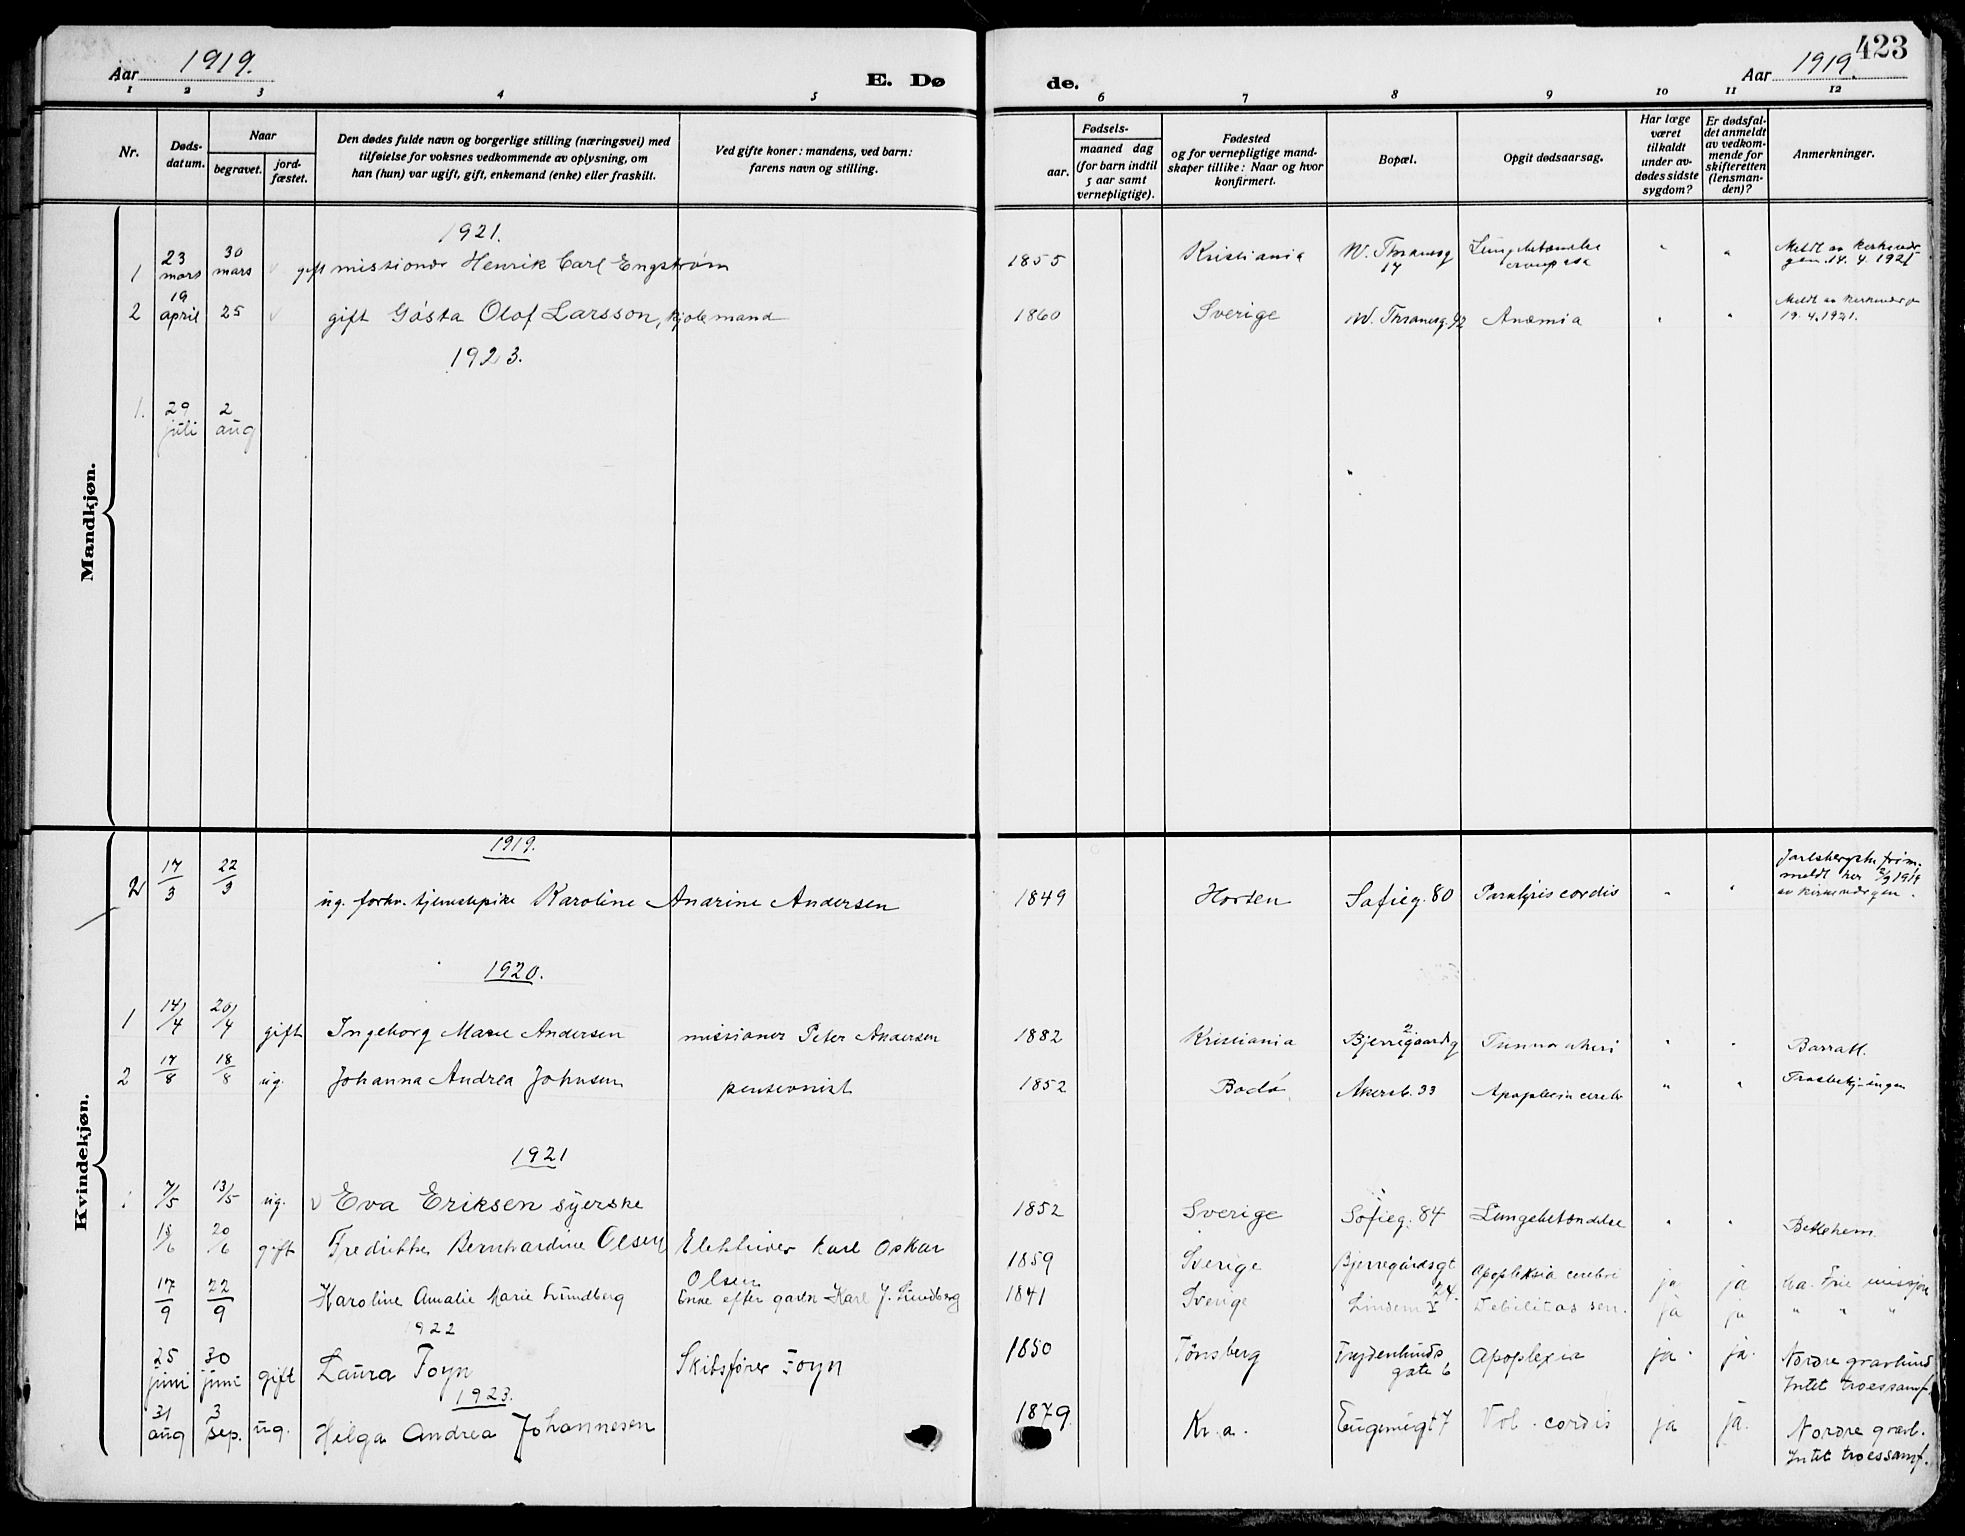 423
Aar 1919.
E. Dø
de.
Aar 1919.
1 2 3 4 5 6 7 8 9 10 11 12
Nr.
Døds-
datum.
Naar
begravet.
jord-
fæstet.
Den dødes fulde navn og borgerlige stilling (næringsvei) med
tilføielse for voksnes vedkommende av oplysning, om
han (hun) var ugift, gift, enkemand (enke) eller fraskilt.
Ved gifte koner: mandens, ved barn:
farens navn og stilling.
Fødsels-
aar.
maaned dag
(for barn indtil
5 aar samt
vernepligtige).
Fødested
og for vernepligtige mand-
skaper tillike: Naar og hvor
konfirmert.
Bopæl.
Opgit dødsaarsag.
Har læge
været
tilkaldt
under av-
dødes sidste
sygdom?
Er dødsfal-
det anmeldt
av vedkom-
mende for
skifteretten
(lensman-
den)?
Anmerkninger.
Mandkjøn.
1921.
1 23 mars 30 mars gift missionær Henrik Carl Engstrøm 1855 Kristiania W. Thranesg 17 Lungebetændelse " Meldt av kirkevær
gen. 14. 4. 1921
2 19 april 25 gift Gösta Olof Larsson, kjolemand 1860 Sverige W. Thranesg. 92 Anæmia " " Meldt av
19. 4. 1921.
1923.
1. 29 juli 2 aug
Kvindekjøn.
1919.
2 17/3 22/3 ug. forhv. tjenestepike Karoline Anarine Andersen 1849 Horten Sofieg. 80 Paralysis cordis " "
meldt her 1919
av kirkeværgen.
1920.
1 14/4 20/4 gift Ingeborg Marie Andersen missionær Peter Andersen 1882 Kristiania Bjerregaardsg 2 " " Barratt.
2 17/8 18/8 ug. Johanna Andrea Johnsen pensionist 1852 Bodö Akersb. 33 Apoplexia cerebr " "
1921
1 7/5 13/5 ug. Eva Eriksen syerske 1852 Sverige Sofieg. 84 Lungebetændelse " " Betlehem.
/6 20/6 gift Fredrikke Bernhardine Olsen Elektriker Karl Oskar
Olsen 1859 Sverige Bjerregårdsgt 24. Apopleksia cerebri ja ja Kra. Frie missjon
17/9 22/9 Karoline Amalie Marie Lundberg Enke efter gartn Karl J. Lundberg 1841 Sverige Debilitas sen. ja ja " " "
1922
25 juni 30 juni gift Laura Foyn Skibsfører Foyn 1850 Tönsberg Frydenlunds
gate 6 Apoplexia ja. ja. Nordre gravlund
Intet troessamf.
1923.
31 aug 3 sep. ug. Helga Andrea Johannesen 1879 Kr.a. Eugeniegt 7 cordis ja ja. Nordre gravl.
Intet troessamf.